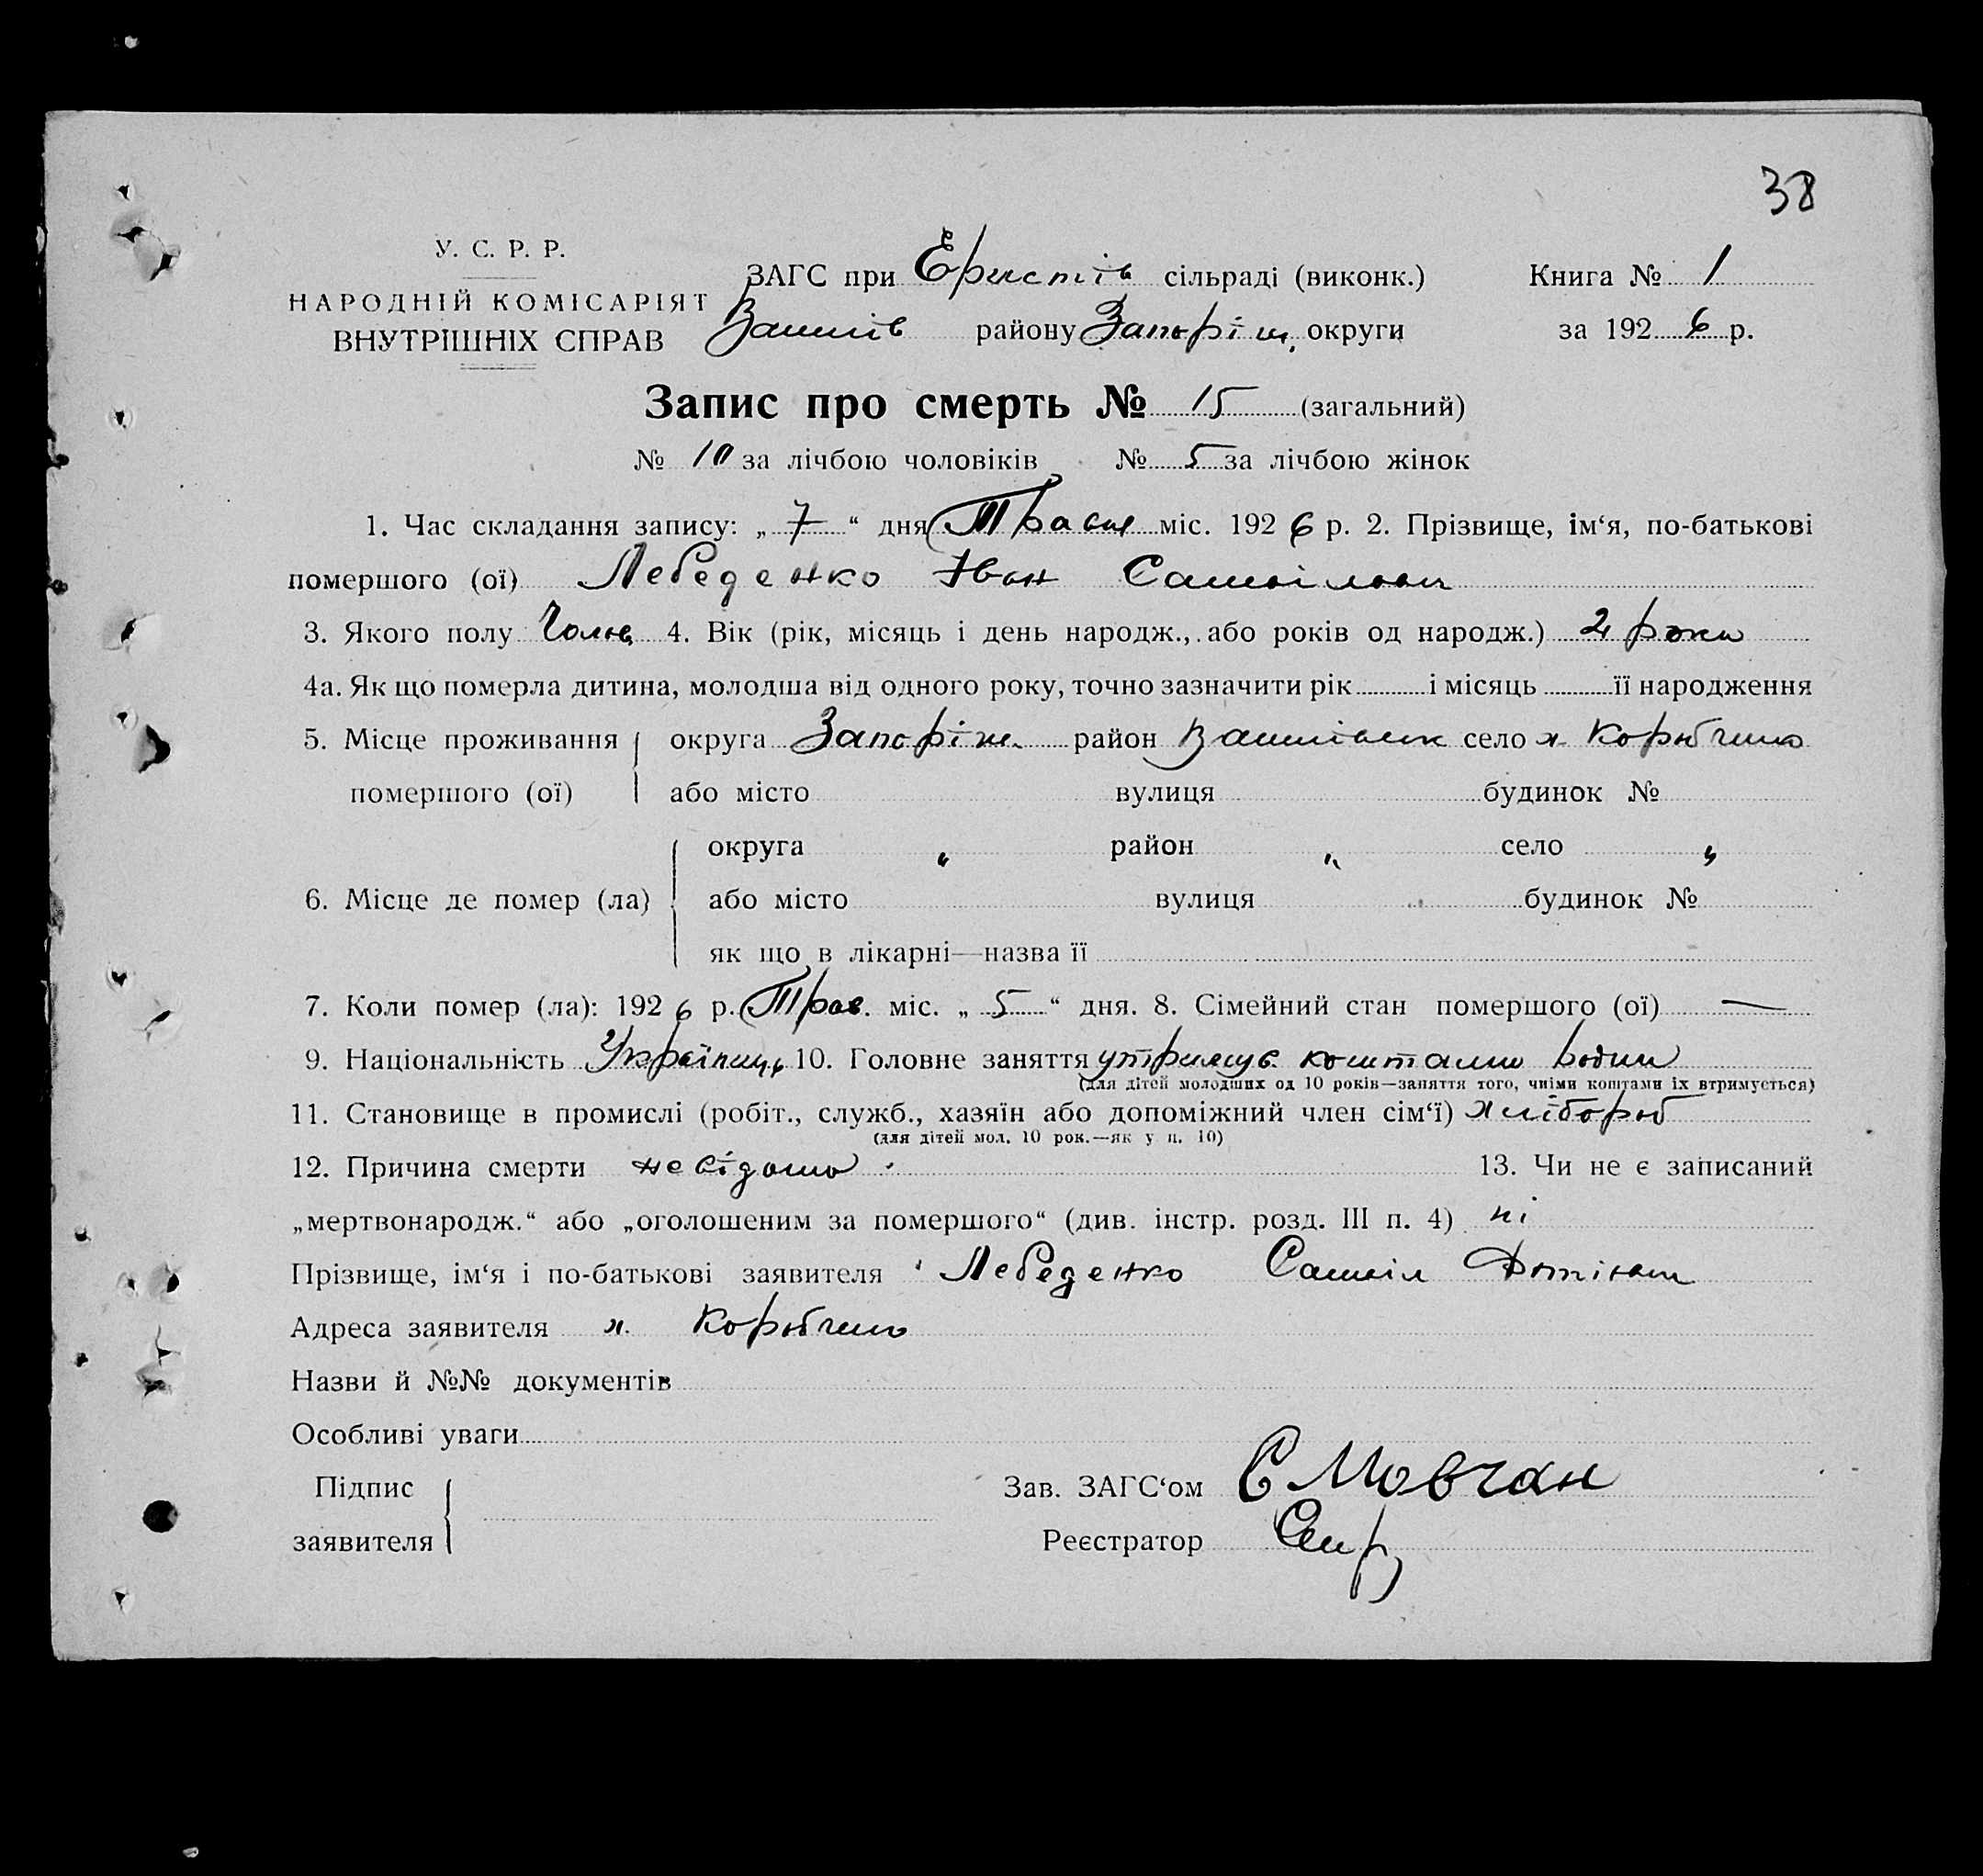 38
У. С. Р. Р.
НАРОДНІЙ КОМІСАРІЯТ
ВНУТРІШНІХ СПРАВ
ЗАГС при сільраді (виконк.)
району Запоріж. округи
Книга № 1
за 1926 р.
Запис про смерть № 15 (загальний)
№ 10 за лічбою чоловіків № 5 за лічбою жінок
1. Час складання запису: „ 7 “ дня Травня міс. 1926 р. 2. Прізвище, ім‘я, по-батькові
помершого (ої) Лебеденко Іван Самойлович
3. Якого полу Чолов. 4. Вік (рік, місяць і день народж., або років од народж.) 2 роки
4а. Як що померла дитина, молодша від одного року, точно зазначити рік і місяць її народження
5. Місце проживання округа Запоріж. район село х.
помершого (ої) або місто вулиця будинок №
округа „ район „ село „
6. Місце де помер (ла) або місто вулиця будинок №
як що в лікарні—назва її
7. Коли помер (ла): 1926 р. Трав. міс. „ 5 “ дня. 8. Сімейний стан помершого (ої) —
9. Національність 10. Головне заняття коштами
(для дітей молодших од 10 років—заняття того, чиїми коштами їх втримується)
11. Становище в промислі (робіт., служб., хазяїн або допоміжний член сім‘ї) хлібороб
(для дітей мол. 10 рок.—як у п. 10)
12. Причина смерти невідома 13. Чи не є записаний
„мертвонародж.“ або „оголошеним за помершого“ (див. інстр. розд. III п. 4) ні
Прізвище, ім‘я і по-батькові заявителя Лебеденко
Адреса заявителя х.
Назви й №№ документів
Особливі уваги
Підпис
заявителя
Зав. ЗАГС‘ом Є Мовчан
Реєстратор